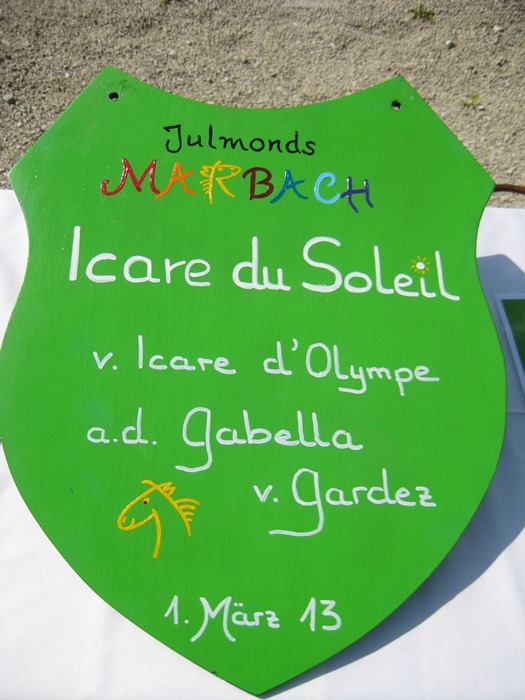 Julmonds
MARBACH
Icare du Soleil
v. Icare d'Olympe
a.d. Gabella
v. Gardez
1. März 13